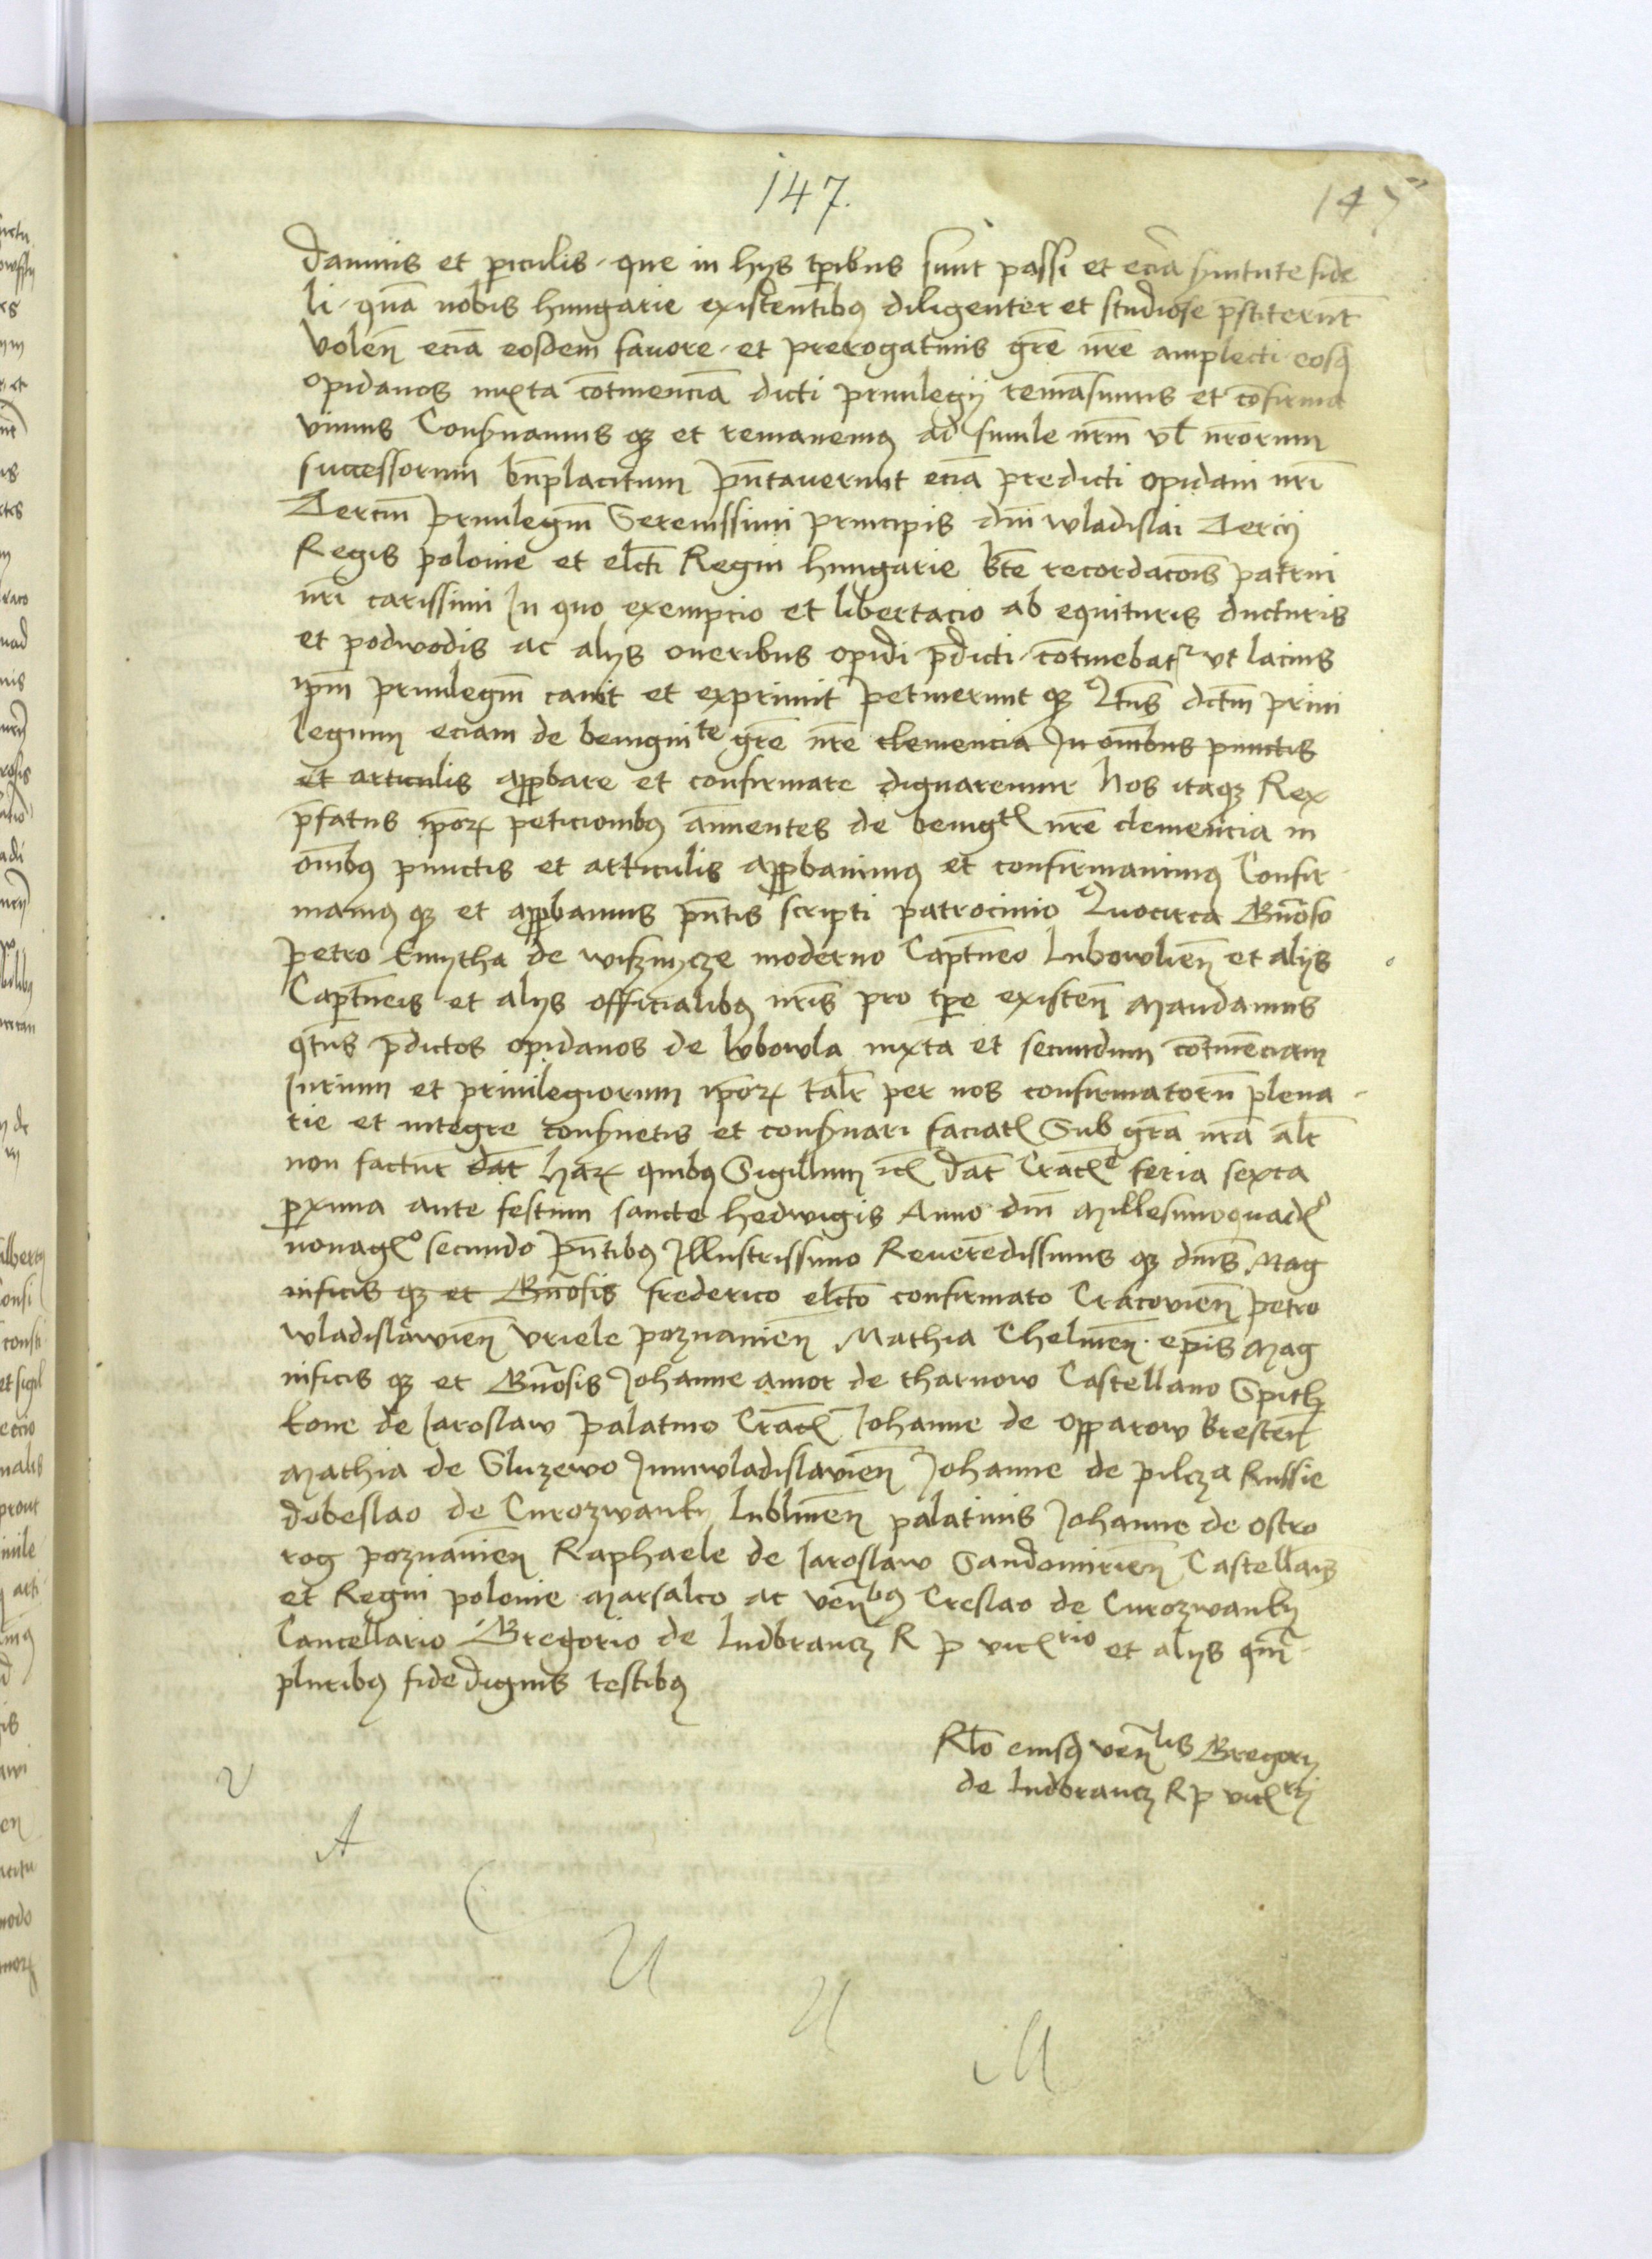 147.
147
damnis et piculis que in hys tpibus sunt passi et eciā svitute fide
li quā nobis hungarie existentibꝰ diligenter et studiose pstiterūt
Volen eciā eosdem favore et prerogativis grē nrē amplecti eosqꝫ
opidanos iuxta cōtinenciā dicti privilegij remāsimus et cōfirma
vimus Conservamus qꝫ et remanemꝰ ad simile nrm vl nrorum
successorum bnplacitum pntaverunt eciā predicti opidani nri
Terciū privilegiū Serenissimi principis dni wladislai Tercij
Regis polonie et elcti Regni hungarie bte recordacois patrui
nri carissimi In quo exempcio et libertacio ab equituris ducturis
et podwodis ac alijs oneribus opidi pdicti cōtinebatr ut lacius
ipm privilegiū canit et exprimit petiverunt qꝫ Qtns dictm privi
legium eciam de benignite grē nrē clemencia In omibus punctis
et articulis appbare et confirmare dignaremur Nos itaqꝫ Rex
pfatus ipoꝝ peticionibꝰ annuentes de benigtꝭ nrē clemencia in
omibꝰ punctis et articulis appbavimꝰ et confirmavimꝰ Confir
mamꝰ qꝫ et appbamus pntis scripti patrocinio Quocirca Gnoso
petro kmytha de wisznycze moderno Captneo Lubowlien et alijs
Captneis et alijs officialibꝰ nris pro tpe existen Mandamus
qtns pdictos opidanos de lubowla iuxta et secundum cōtinenciam
Iurium et privilegiorum ipoꝝ talr per nos confirmatorū plena
rie et integre conservetis et conservari faciatꝭ Sub grā nrā alr
non factur dat haꝝ quibꝰ Sigillum ꝛcꝭ dat Cracꝭe feria sexta
pxima ante festum sancte hedwigis Anno dni Millesimoquadꝭo
nonagꝭo secundo pntibꝰ Illustrissimo Reverēdissimis qꝫ dnis Mag
nificis qꝫ et Gnosis frederico elcto confirmato Cracovien petro
wladislavien Vriele poznanien Mathia Chelmen epis Mag
nificis qꝫ et Gnosis Johanne amor de tharnow Castellano Spith
kone de Jaroslaw palatino Cracꝭ Johanne de opparow Bresten
Mathia de Sluzewo Junivladislavien Johanne de pilcza Russie
dobeslao de Curozwanky lublinen palatinis Johanne de ostro
rog poznanien Raphaele de Jaroslaw Sandomirien Castellais
et Regni polonie Marsalco ac venbꝰ Creslao de Curozwanky
Cancellario Gregorio de ludbrancz R p vicꝭrio et alijs qm
pluribꝰ fidedignis testibꝰ
Rlo eiusdꝫ venlis Gregorij
de ludbrancz R p vicꝭrij
V
A
C
U
U
M